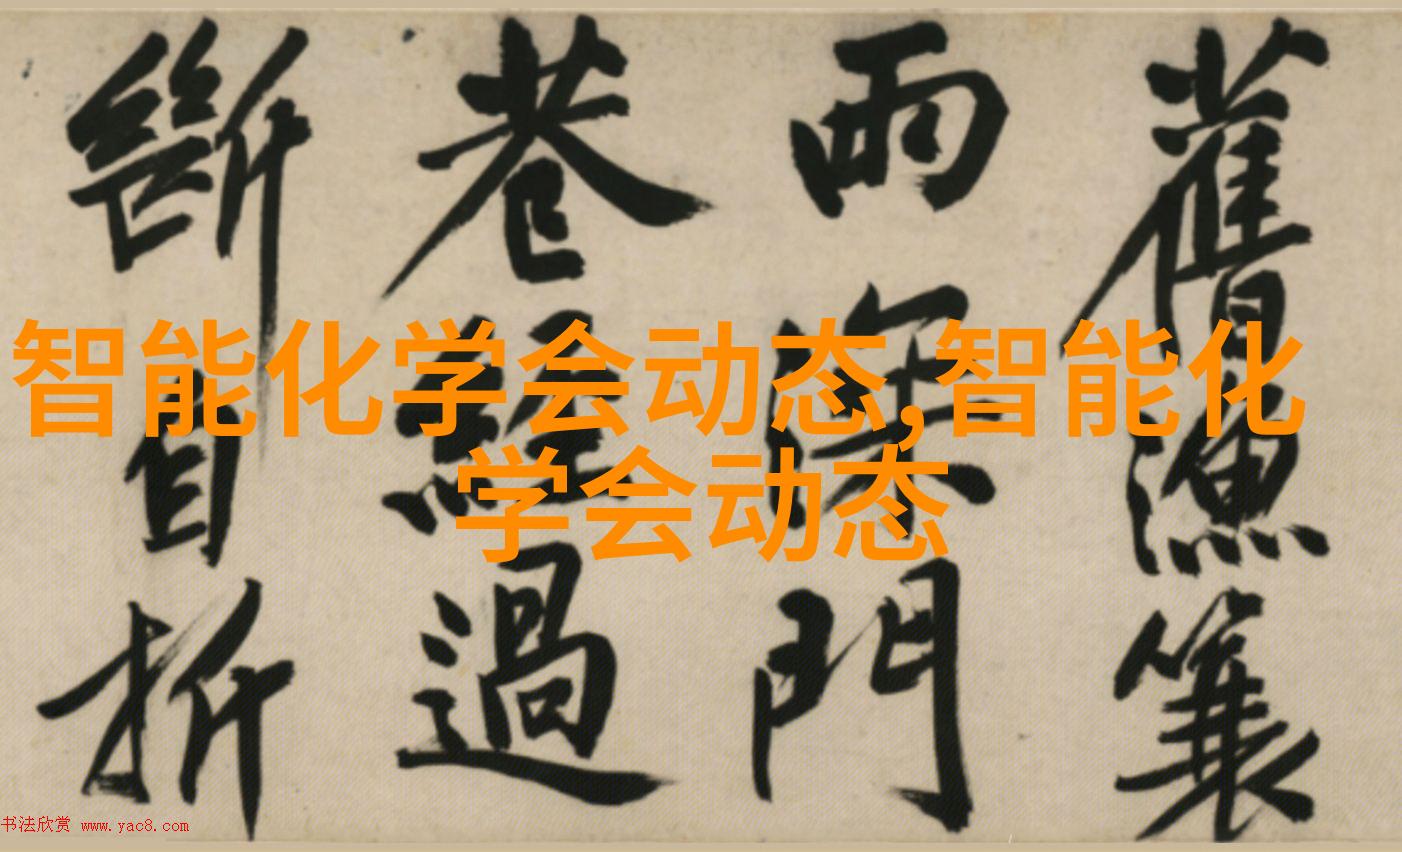 舊漁簑
雨深門
巷經過
斷自折
智能化学会动态,智能化
学会动态
书法欣赏 www.yac8.com